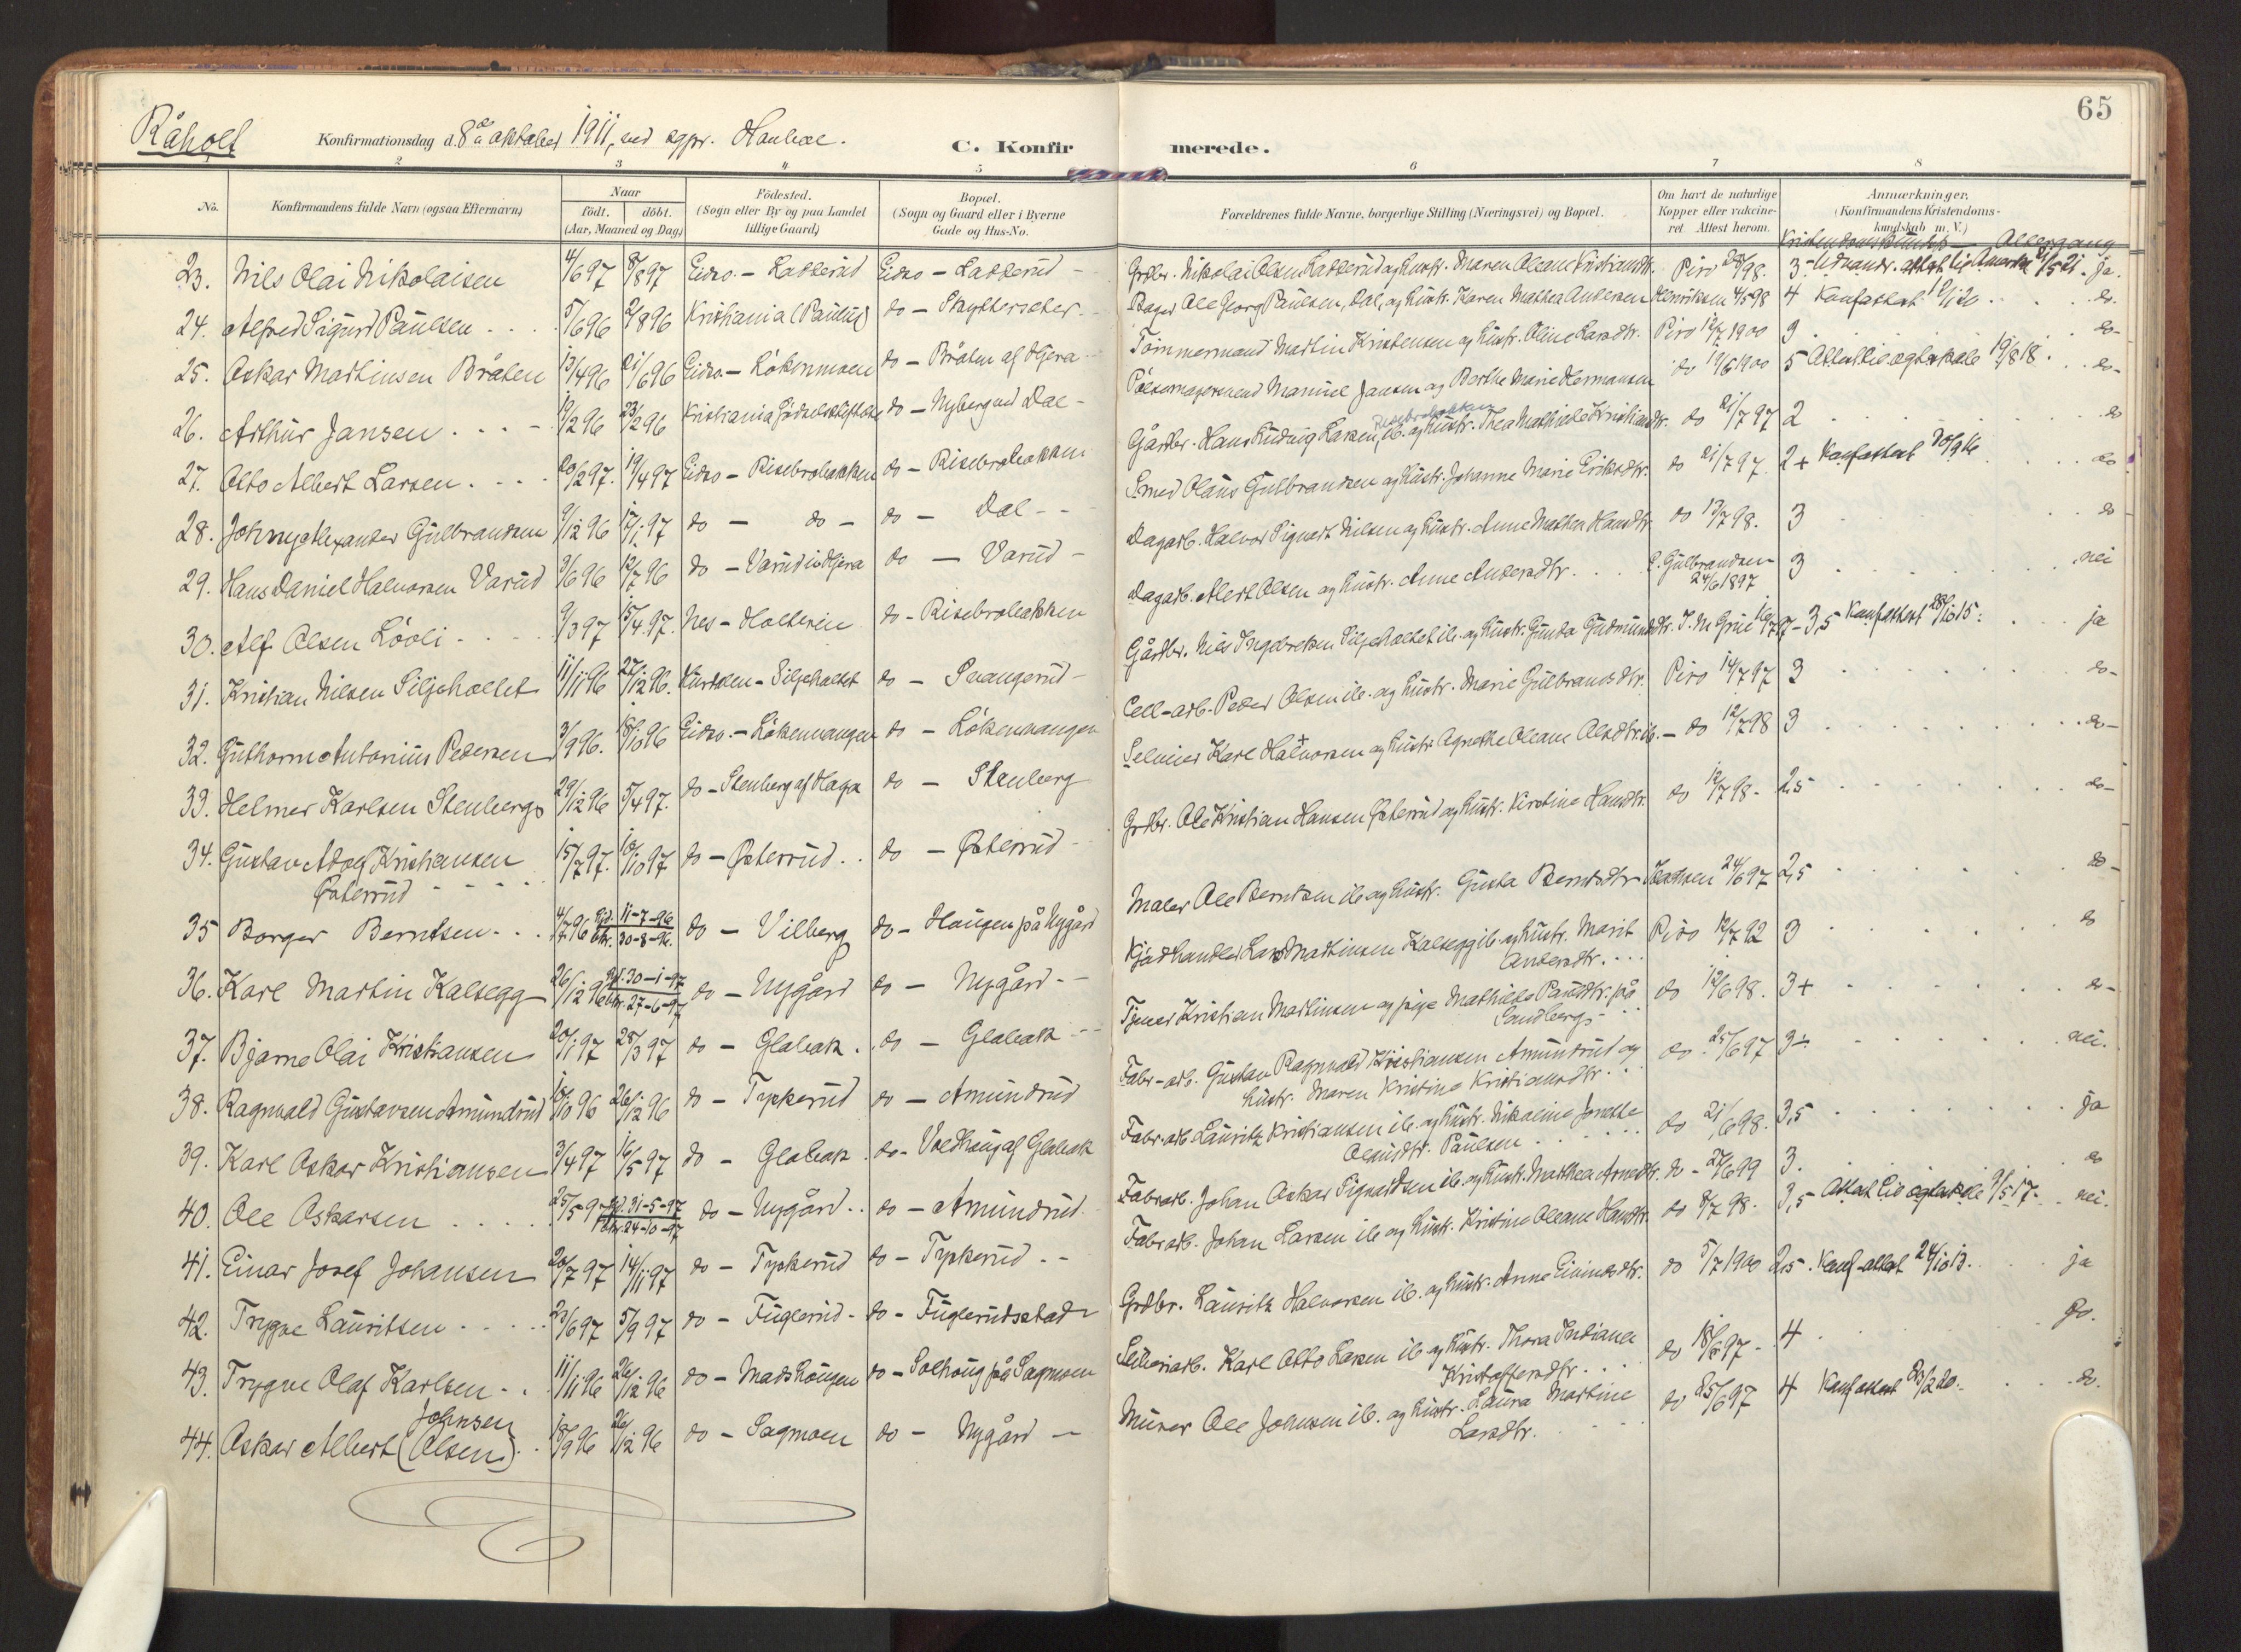 65
Råholt Konfirmationsdag d. 8de oktober 1911, ved sgpr.
C. Konfirmerede.
2 3 4 5 6 7 8
No. Konfirmandens fulde Navn (ogsaa Efternavn) Naar Fødested. Bopæl. Forældrenes fulde Navne, borgerlige Stilling (Næringsvei) og Bopæl. Om havt de naturlige Anmærkninger.
født. døbt. (Sogn eller By og paa Landet (Sogn og Gaard eller i Byerne Kopper eller vakcine- (Konfirmandens Kristendoms-
(Aar, Maaned og Dag.) tillige Gaard) Gade og Hus-No. ret Attest herom. kundskab m. V.)
Kristendomskundsk. — Altergang
23. Nils Olai Nikolaisen 4/6 97 8/8 97 Eidsv. -Ladderud Eidsv - Ladderud - Grdbr. Nikolai Olsen Ladderud og hustr. Maren Oleane Kristiansdtr. Piro 98. 3 - Udvandr. attest til Amerika 5 21. ja.
24. Alfred Sigurd Paulsen 5/6 96 2/8 96 Kristiania (Paulus) do - Skytterseter - Bager Ole Georg Paulsen, Dal, og hustr. Karen Mathea Andersen Henriksen 4/5 98 4 Konfattest 12/1 20 do.
25. Oskar Martinsen Bråten 13/4 96 21/6 96 Eidsv. - Løkenmoen do - Bråten af Hjera - Tømmermand Martin Kristensen og hustr. Oline Larsdtr. Piro 12/7 1900 3 do-
26. Arthur Jansen 19/2 96 23/2 96 Kristiania Fødselsstiftelse do - Nyberg ved Dal - Pølsemagersvend Manuel Jansen og Berthe Marie Hermansen do 19/6 1900 5 Attest til ægteskab 19/8 18. do-
27. Otto Albert Larsen 20/2 97. 19/4 97 Eidsv - Risebrobakken do - Risebrobakken Gårdbr. Hans Ludvig Larsen, Risebrobakken ib. og hustr. Thea Mathilde Kristiansdtr. do 21/7 97 2 do
28. Johnny Alexander Gulbrandsen 9/12 96 17/1 97 do - do - do - Dal - - Smed Olaus Gulbrandsen og hustr. Johanne Marie Eriksdtr. do 21/7 97. 2+ Konfattest 30/9 16 do
29. Hans Daniel Halvorsen Varud 3/6 96 12/7 96 do - Varud i Hjera do - Varud - Dagarb. Halvor Sigvart Nilsen og hustr. Anne Mathea Hansdtr. do 13/7 98. 3 do
30. Alf Olsen Løvli 9/3 97 15/4 97. Nes - Holterin do - Risebrobakken Dagarb. Albert Olsen og hustr. Anne Andersdtr. P. Gulbrandsen 24/6 1897 3 nei
31. Kristian Nilsen Siljeholtet 11/11 96 27/12 96. Hurdalen - Siljeholtet do - Svangerud - Gårdbr. Nils Ingebretsen Siljeholtet ib. og hustr. Gunda Gudmundsdtr. J. M. Grue 16/7 97 - 3,5 Konfattest 28/10 15. ja
32. Guthorm Antonius Pedersen 3/9 96. 18/10 96 Eidsv. - Løkenvangen do - Løkenvangen Cell-arb. Peder Olsen ib. og hustr. Marie Gulbrandsdtr. Piro 14/7 97 3 do-
33. Helmer Karlsen Stenberg 29/12 96 5/4 97. do - Stenberg af Haga do - Stenberg Selveier Karl Halvorsen og hustr. Agnethe Oleane Olsdtr. ib. - do 12/7 98 3 do-
34. Gustav Adolf Kristiansen Østerud 15/7 97. 10/10 97 do - Østerud do - Østerud - Grdbr. Ole Kristian Hansen Østerud og hustr. Kirstine Hansdtr. do 12/7 98 - 2,5 do-
35 Borger Berntsen 4/7 96 11-7-96 30-8-96. do - Vilberg do - Haugen på Nygård Maler Ole Berntsen ib og hustr. Gusta Berntsdtr. 24/6 97 2,5 do-
36. Karl Martin Kalsegg 26/12 96 30-1-97 27-6-97 do - Nygård do - Nygård - Kjødhandler Lars Martinsen Kalsegg ib. og hustr. Marit Andersdtr. Piro 12/7 92 3 do
37. Bjarne Olai Kristiansen 20/1 97 28/3 97 do - Glabak do - Glabak - Tjener Kristian Martinsen og pige Mathilde Paulsdtr. på Sandberg do 12/6 98. 3+ do-
38. Ragnvald Gustavsen Amundrud 10/10 96 26/12 96 do - Tyskerud do - Amundrud Fabr-arb. Gustav Ragnvald Kristiansen Amundrud og hustr. Maren Kristine Kristiansdtr. do 25/6 97 3÷ nei.
39. Karl Oskar Kristiansen 3/4 97 16/5 97 do - Glabak do - Voldhaug af Glabak Fabr-arb. Lauritz Kristiansen ib. og hustr. Nikoline Jonette Olausdtr. Paulsen do 21/6 98. 3,5 ja
40. Ole Oskarsen 25/5 97 31-5-97 24-10-97 do - Nygård do - Amundrud Fabrarb. Johan Oskar Sigvartsen ib. og hustr. Marthea Arnesdtr. do - 27/6 99 3. do
41. Einar Josef Johansen 20/7 97 14/11 97 do - Tyskerud do - Tyskerud - Fabrarb. Johan Larsen ib og hustr. Kristine Oleane Hansdtr. do 8/7 98. 3,5 Attest til ægteskab 9/5 17. nei.
42. Trygve Lauritsen 23/6 97 5/9 97 do - Fuglerud - do - Fuglerudsstad - Grdbr. Lauritz Halvorsen ib. og hustr. Anne Eivindsdtr. do 5/7 1900 2,5. Konf-attest 24/10 13. ja
43. Trygve Olaf Karlsen 11/11 96 26/12 96 do - Madshaugen do - Solhaug på Sagmoen Karl Otto Larsen ib og hustr. Thora Indiana Kristoffersdtr. do 97 - 4 do.
44. Oskar Albert (Olsen) Johnsen 18/9 96 26/12 96 do - Sagmoen do - Nygård - Murer Ole Johnsen ib. og hustr. Laura Martine Larsdtr. do 25/6 97 4 Konfattest 23/2 20. do.